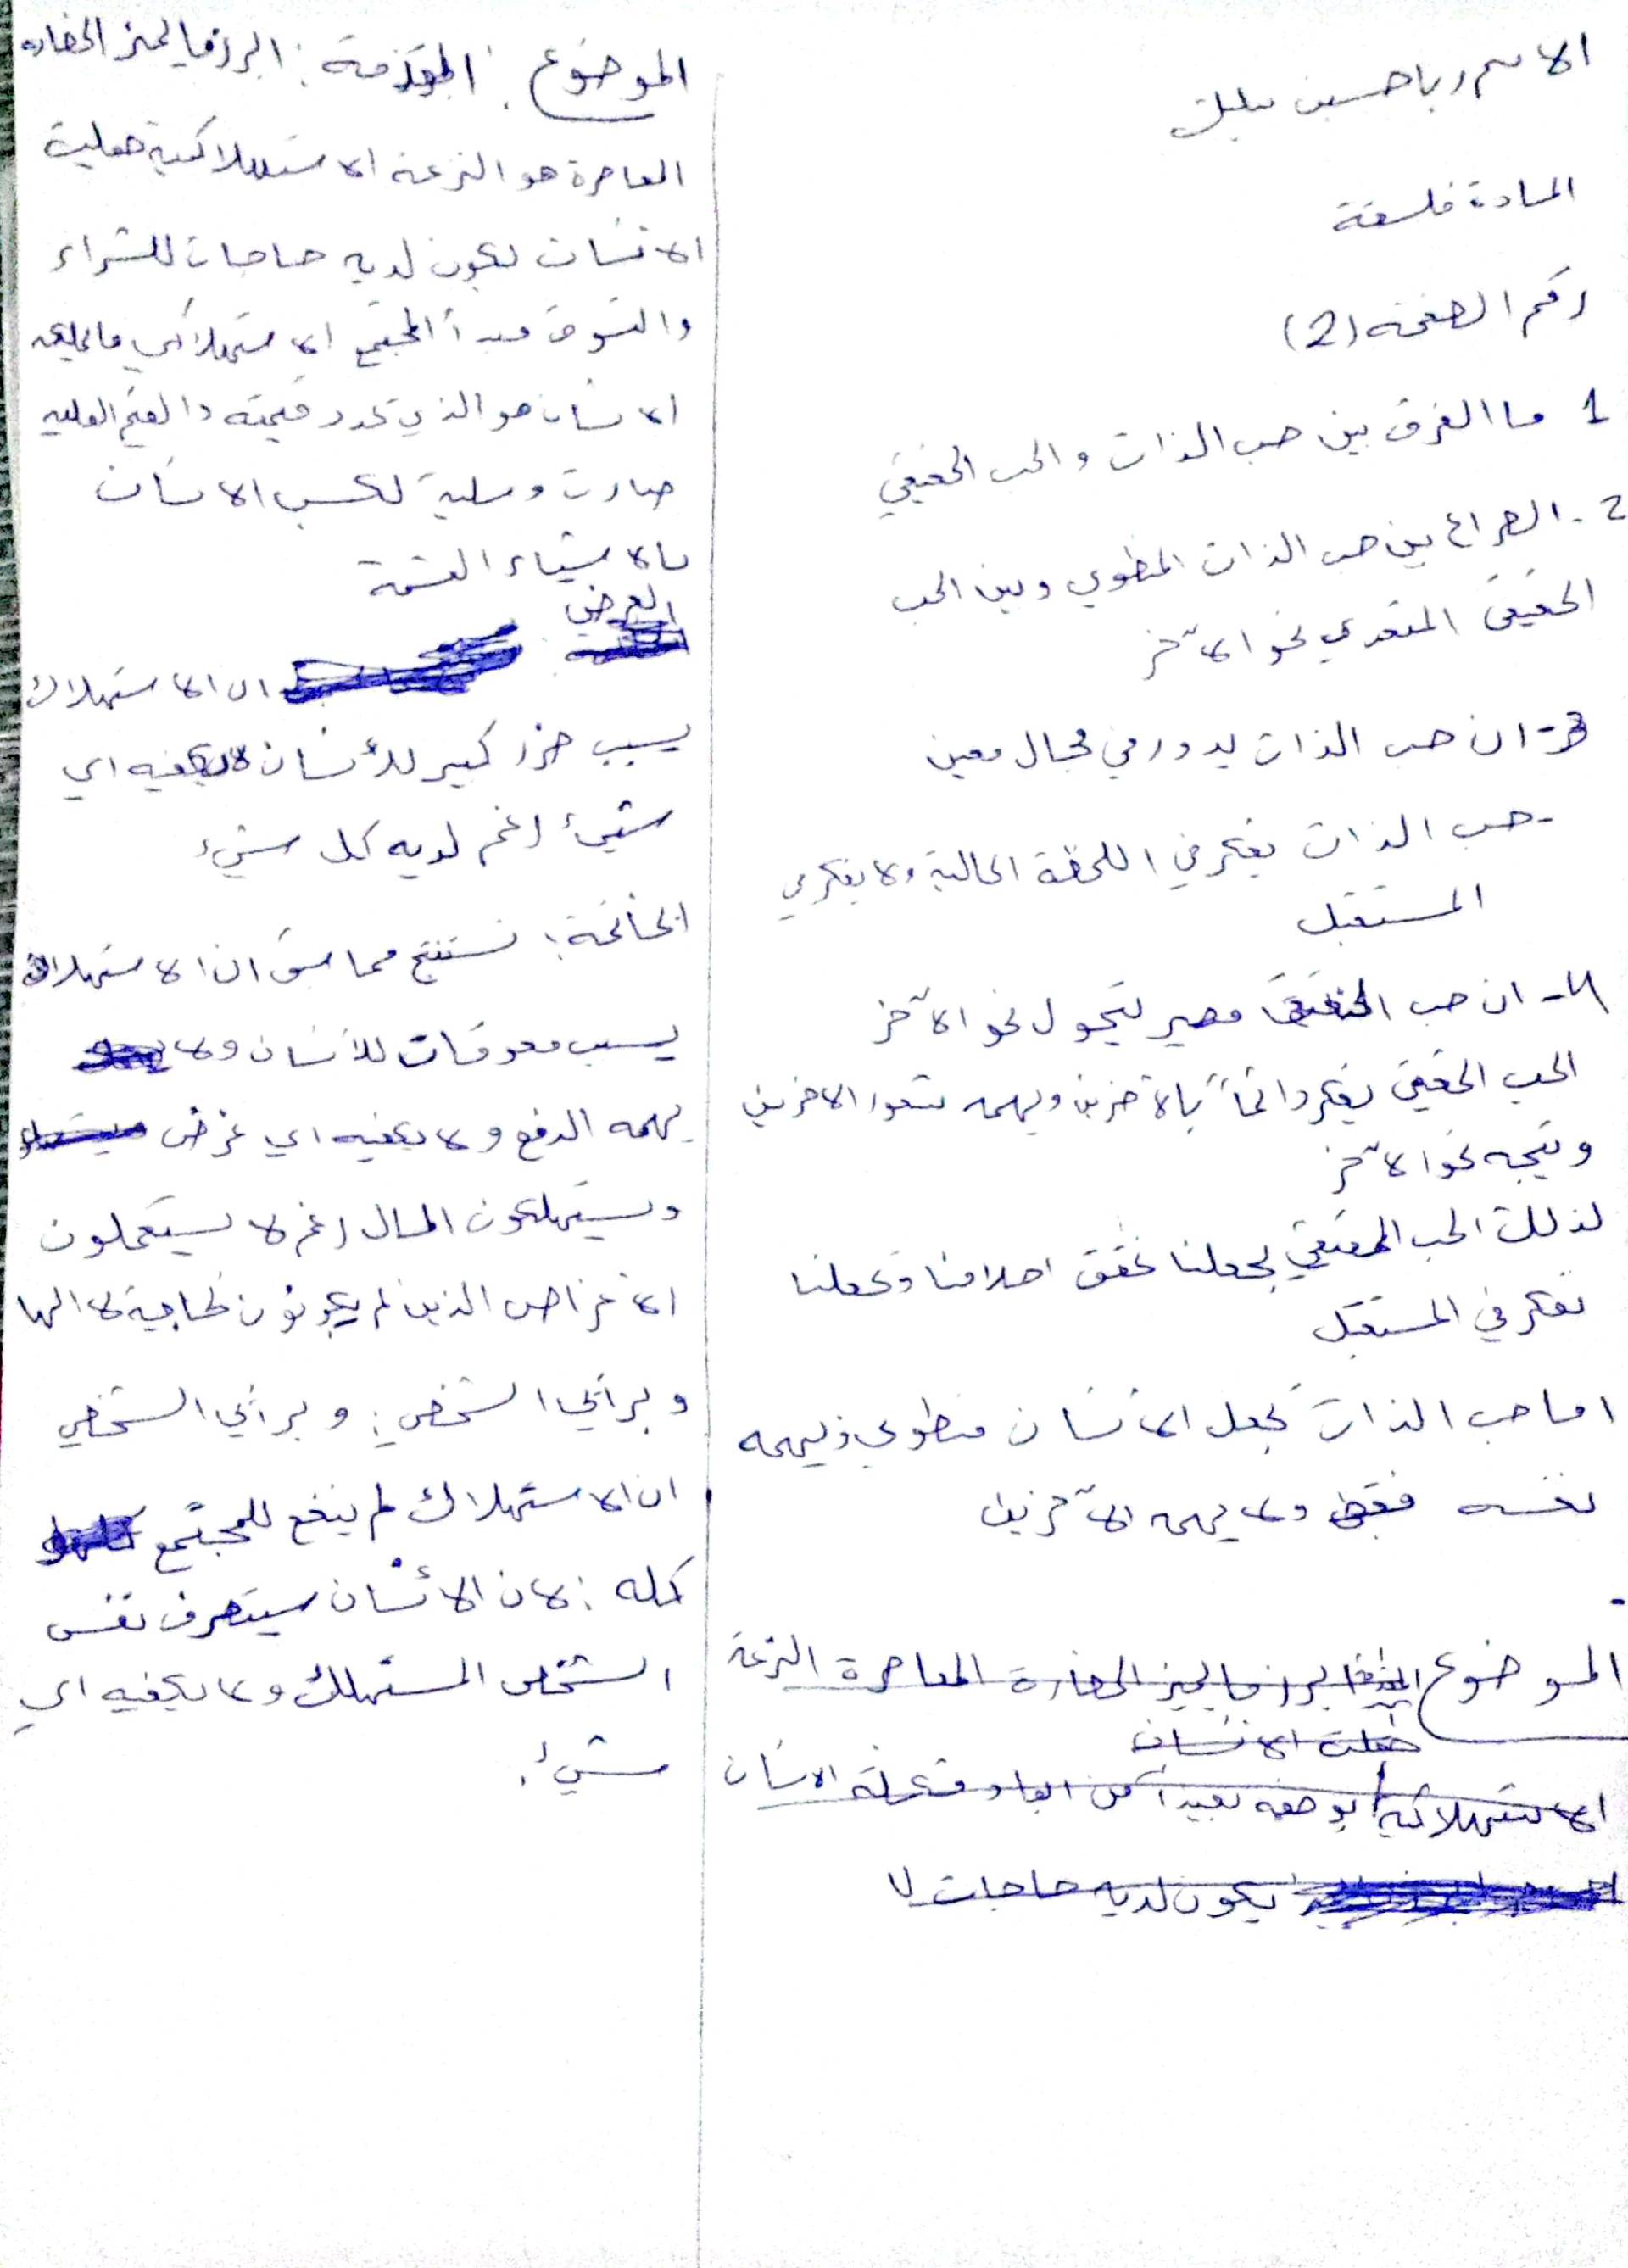 الاسم ربا حسين
المادة فلسفة
رقم الصفحة (2)
1 ما الفرق بين حب الذات والحب الحقيقي
2- الصراع بين حب الذات المنطوي وبين الحب
الحقيقي المتعدي نحو الآخر
3- ان حب الذات يدور في مجال معين
- حب الذات يفكر في اللحظة الحالية ولا يفكر في
المستقبل
4- ان حب الحقيقي مصير يتحول نحو الآخر
الحب الحقيقي يفكر دائماً بالآخرين ويهمه شعور الاخرين
ويتجه نحو الآخر
لذلك الحب الحقيقي يجعلنا نحقق احلامنا وتجعلنا
نفكر في المستقبل
اما حب الذات تجعل الانسان منطوي ويهمه
نفسه فقط ولا يهمه الآخرين
الموضوع ابرز ما يميز الحضارة المعاصرة النزعة
جعلت الانسان
الاستهلاكية بوصفه تعبيداً عن الانسان
يكون لديه حاجات لا
الموضوع: المقدمة: ابرز ما يميز الحضارة
المعاصرة هو النزعة الاستهلاكية جعلت
الانسان يكون لديه حاجات للشراء
والتسوق مبدأ المجتمع الاستهلاكي ما يملكه
الانسان هو الذي تحدد قيمته والقيم العليا
صارت وسلية لكسب الانسان
بالاشياء
العرض
ان الاستهلاك
يسبب ضرر كبير للأنسان لا يكفيه اي
شيئ رغم لديه كل شيء
الخاتمة: نستنتج مما سبق ان الاستهلاك
يسبب معوقات للأنسان ولا
يهمه الدفع ولا يكفيه اي غرض
ويستهلكون المال رغم لا يستعملون
الاغراض الذين لم يكونون لحاجية لا الها
وبرأي الشخصي: وبرأي الشخصي
ان الاستهلاك لم ينفع للمجتمع
كله: لان الأنسان سيتصرف نفس
الشخص المستهلك ولا يكفيه اي
شيء.